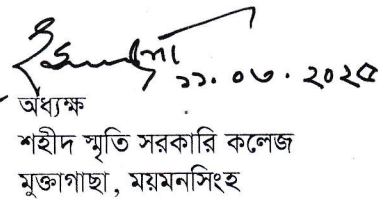 ১১.০৩.২০২৫
অধ্যক্ষ
শহীদ স্মৃতি সরকারি কলেজ
মুক্তাগাছা, ময়মনসিংহ